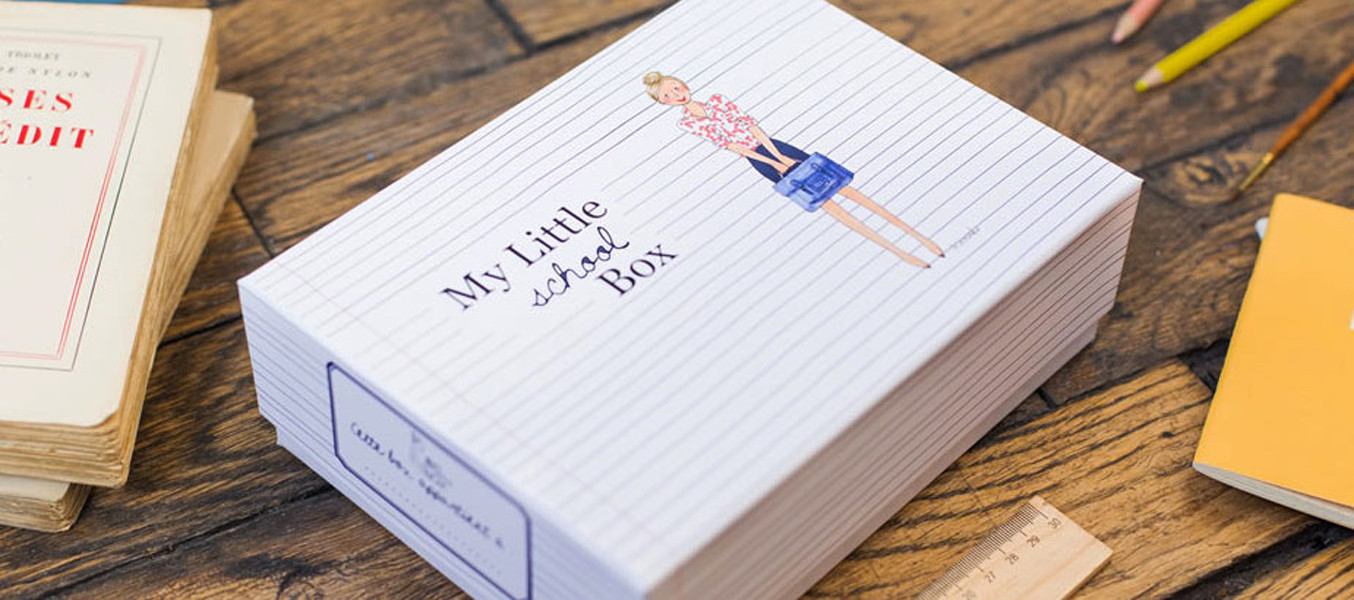 TRIOLET
DE NYLON
SES
ÉDIT
My Little
school
Box
Cette box appartient à
30
29
28
27
26